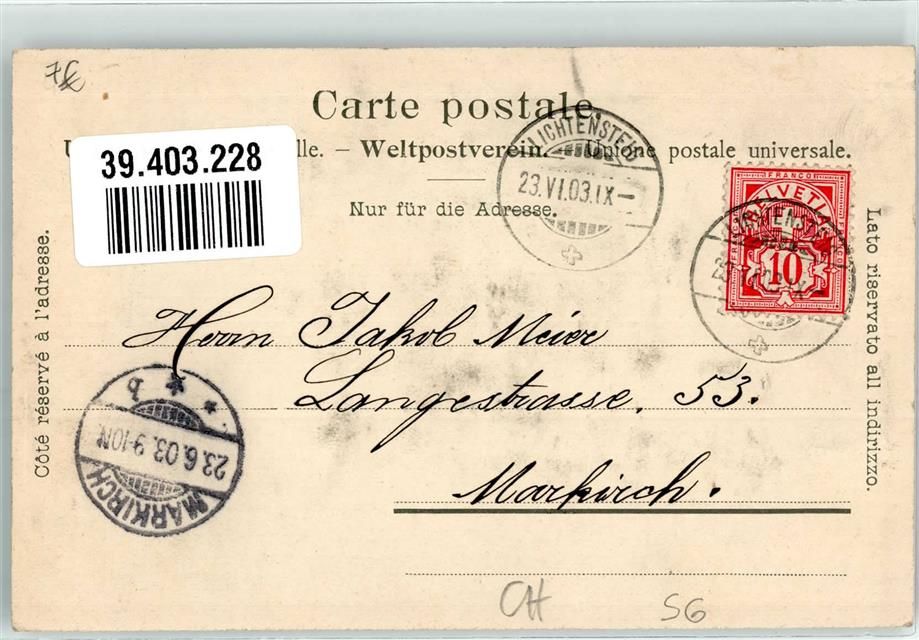 7€
Carte postale.
39.403.228
lle. – Weltpostverein. – Unione postale universale.
Nur für die Adresse.
LICHTENSTEIG
23.VI.03.IX–
FRANCO
HELVETIA
10
LICHTENSTEIG
Côté réservé à l'adresse.
Lato riservato all indirizzo.
Herrn Jakob Meier
Langestrasse. 53.
Markirch.
MARKIRCH
23.6.03.9-10N
b
CH
SG